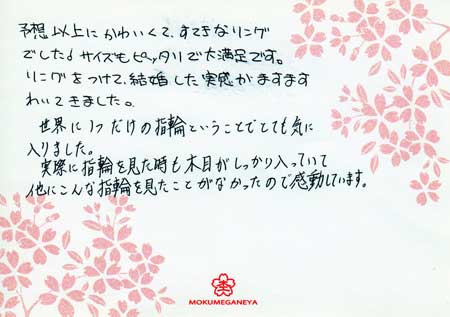 予想以上にかわいくて、すてきなリング
でした♪サイズもピッタリで大満足です。
リングをつけて、結婚した実感がますます
わいてきました。
世界に1つだけの指輪ということでとても気に
入りました。
実際に指輪を見た時も木目がしっかり入っていて
他にこんな指輪を見たことがなかったので感動しています。
MOKUMEGANEYA